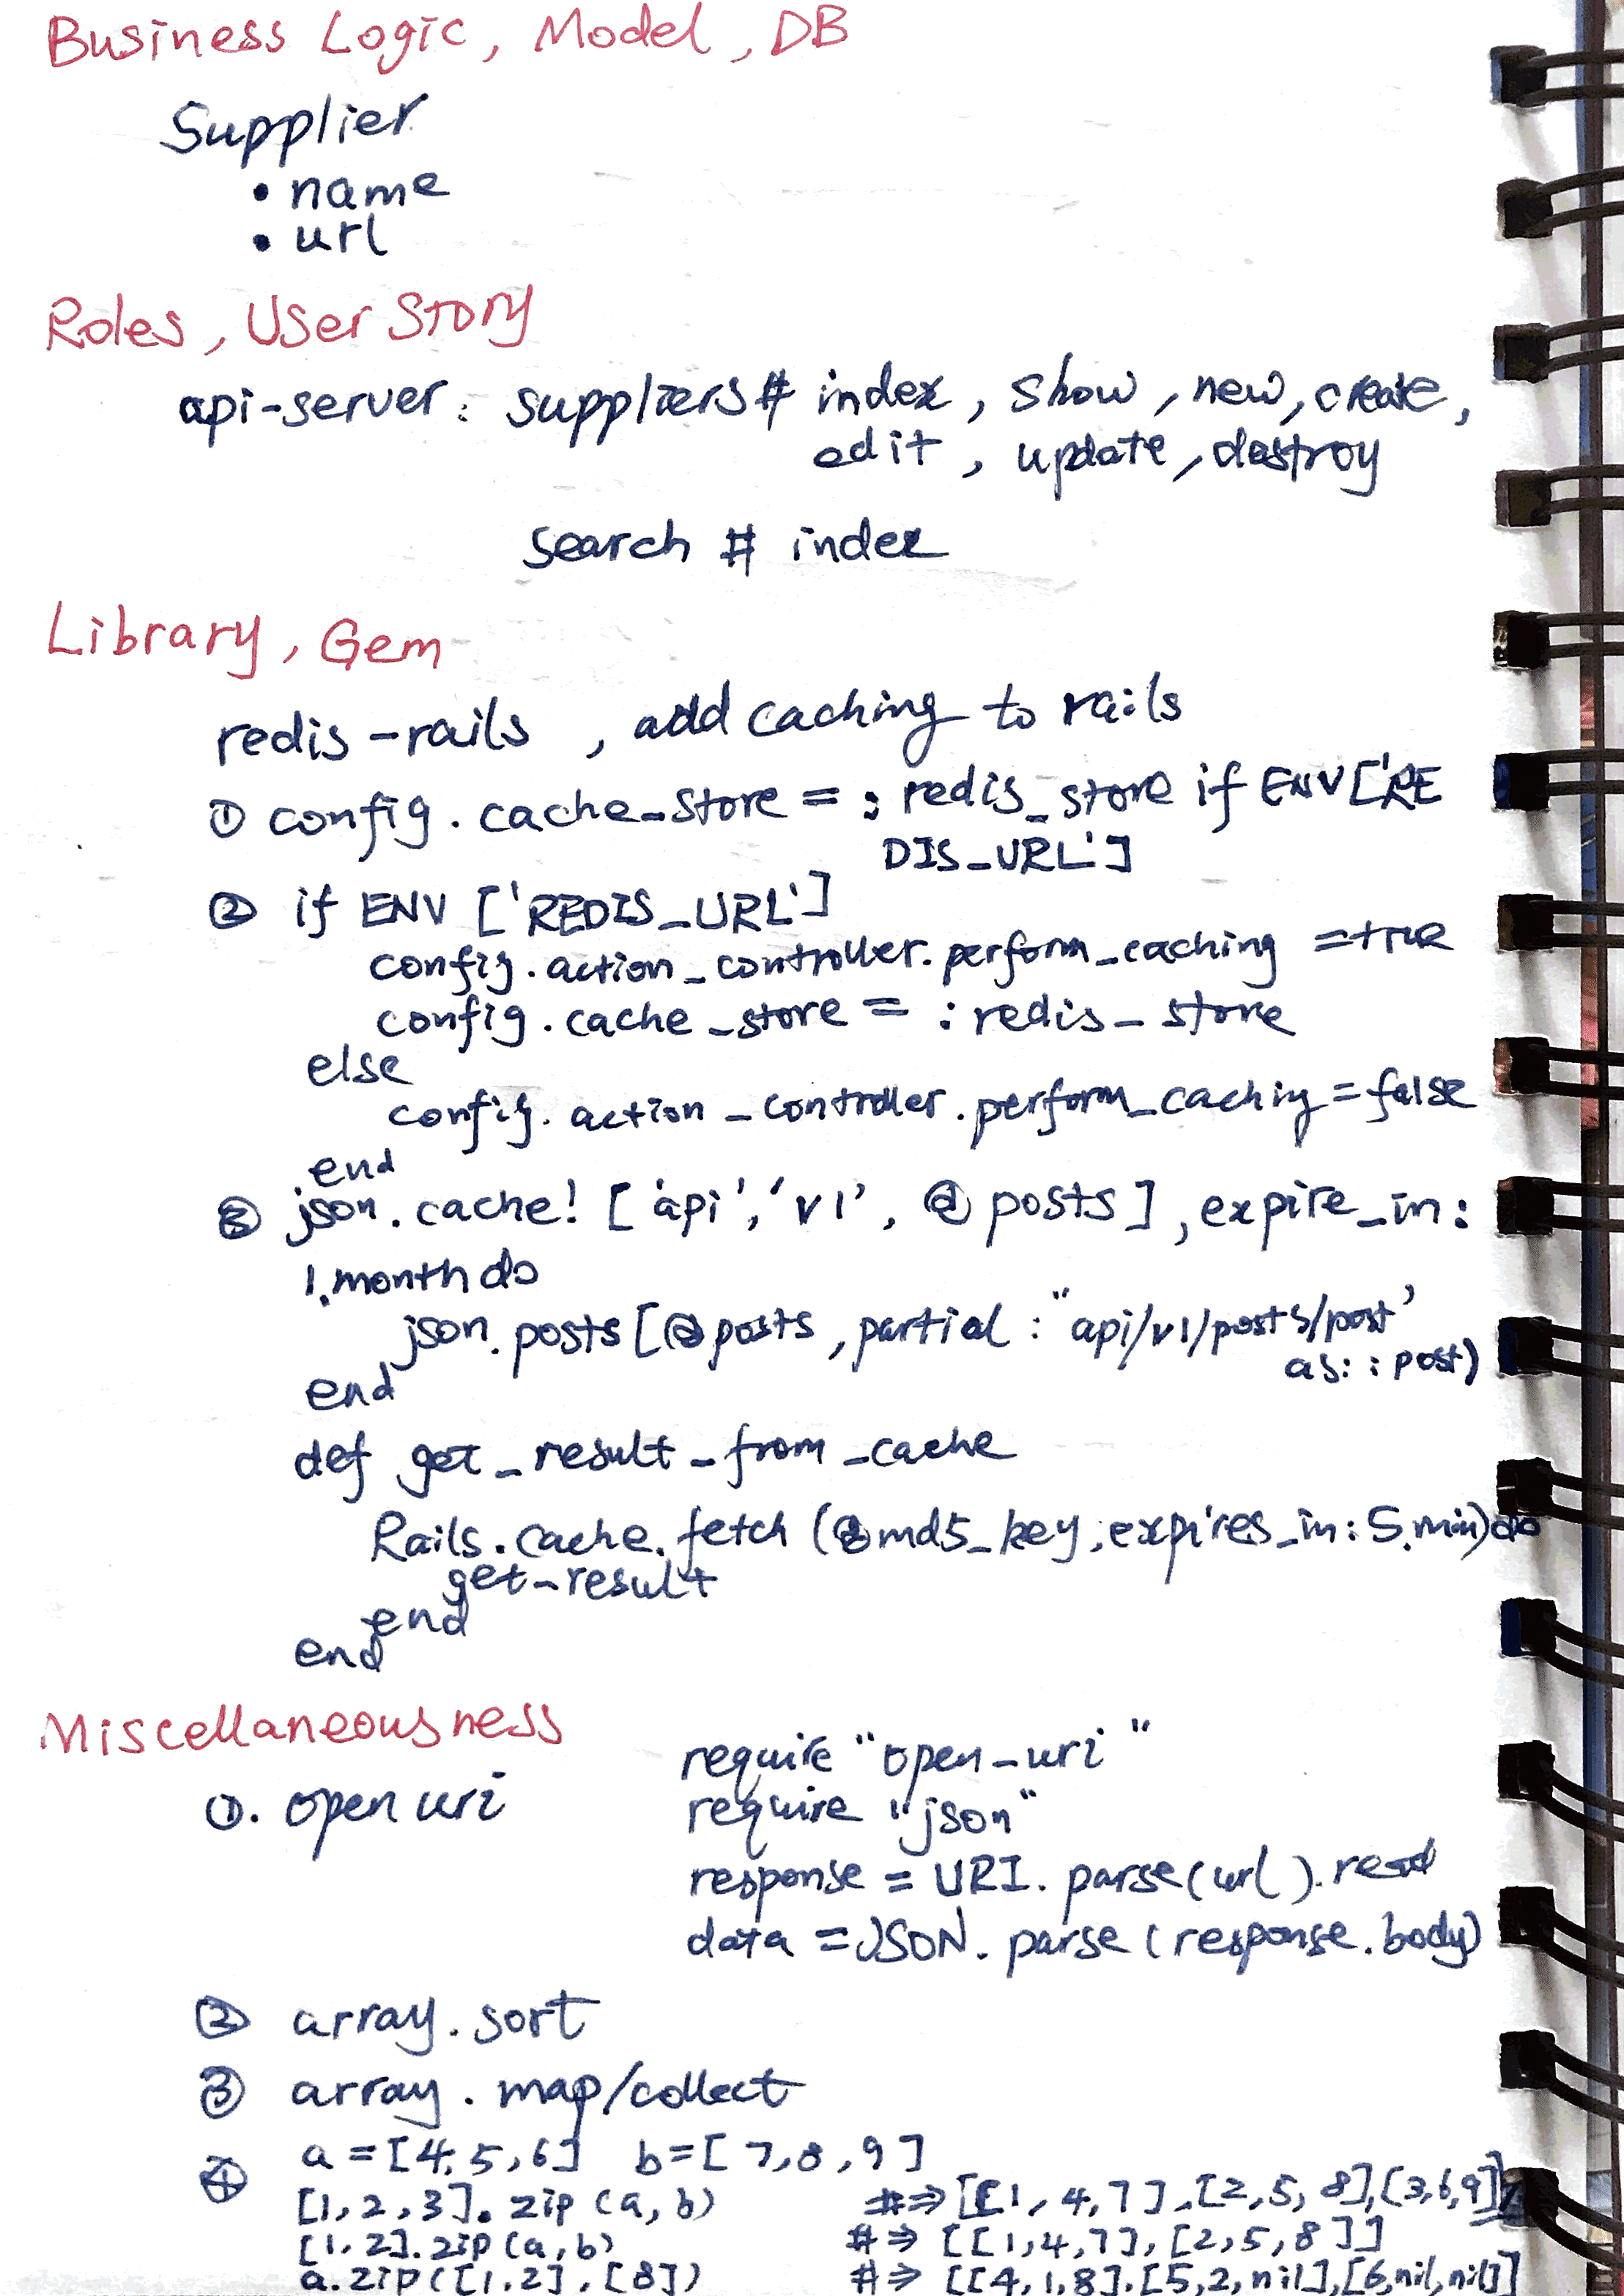 Business Logic, Model, DB
Supplier
• name
• url
Roles, User Story
api-server: suppliers# index, show, new, create,
edit, update, destroy
search # index
Library, Gem
redis-rails , add caching to rails
① config.cache_store = :redis_store if ENV['RE
DIS_URL']
② if ENV ['REDIS_URL']
config.action_controller.perform_caching =true
config.cache_store = :redis_store
else
config.action_controller.perform_caching=false
end
③ json.cache! ['api','v1', @posts], expire_in:
1.month do
json.posts [@posts, partial: "api/v1/posts/post'
as: :post)
end
def get_result_from_cache
Rails.cache.fetch (@md5_key, expires_in: 5.min) do
get_result
end
end
Miscellaneousness
①. open uri
require "open-uri"
require "json"
response = URI.parse(url).read
data =JSON.parse(response.body)
② array.sort
③ array.map/collect
④ a=[4,5,6] b=[7,8,9]
[1,2,3].zip(a,b) #=> [[1,4,7],[2,5,8],[3,6,9]]
[1,2].zip(a,b) #=> [[1,4,7],[2,5,8]]
a.zip([1,2],[8]) #=> [[4,1,8],[5,2,nil],[6,nil,nil]]